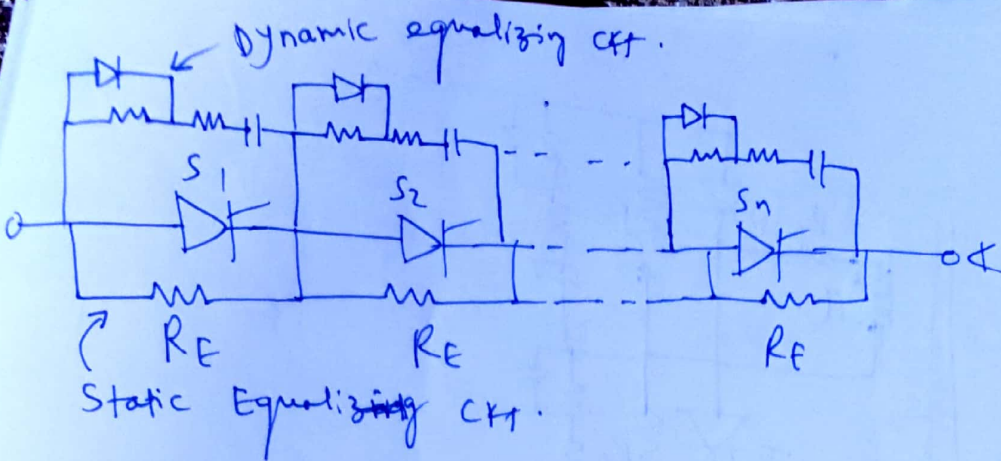 Dynamic equalizing ckt.
S1 S2 Sn
RE RE RE
Static Equalizing ckt.